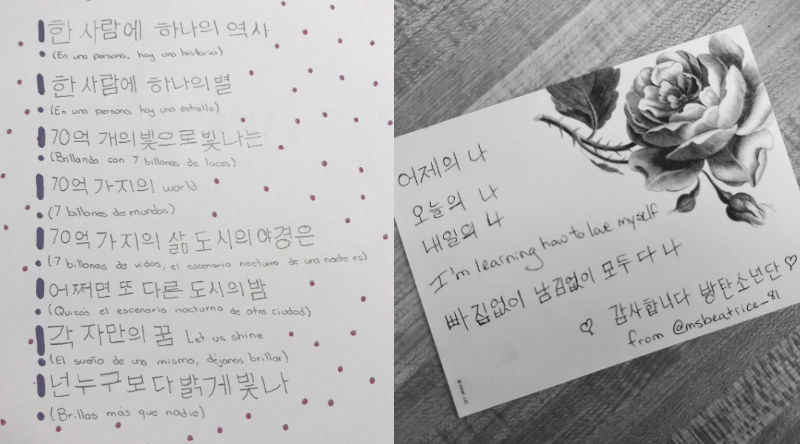 한 사람에 하나의 역사
(En una persona, hay una historia)
한 사람에 하나의 별
(En una persona, hay una estrella)
70억 개의 빛으로 빛나는
(Brillando con 7 billones de luces)
70억 가지의 world
(7 billones de mundos)
70억 가지의 삶 도시의 야경은
(7 billones de vidas, el escenario nocturno de una noche es)
어쩌면 또 다른 도시의 밤
(Quizás el escenario nocturno de otra ciudad)
각 자만의 꿈 Let us shine
(El sueño de uno mismo, déjanos brillar)
넌 누구보다 밝게 빛나
(Brillas más que nadie)
어제의 나
오늘의 나
내일의 나
I'm learning how to love myself
빠짐없이 남김없이 모두 다 나
감사합니다 방탄소년단
from @msbeatrice_81